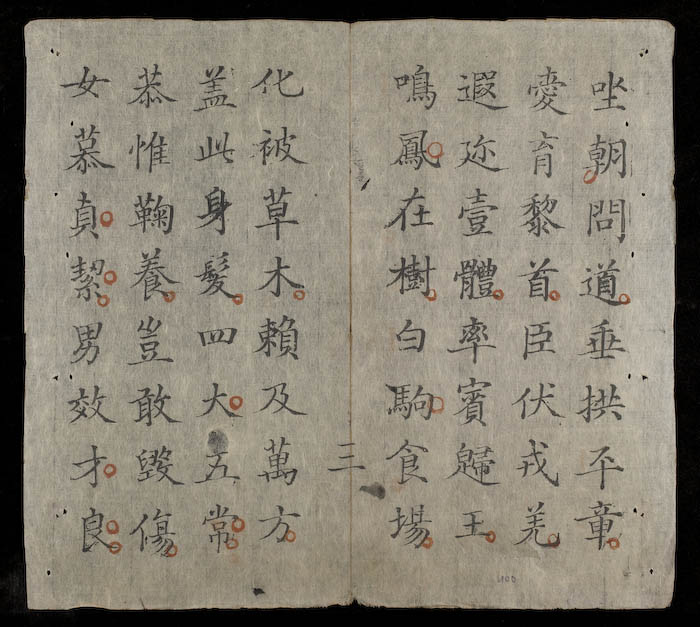 坐朝問道垂拱平章
愛育黎首臣伏戎羌
遐迩壹體率賓歸王
鳴鳳在樹白駒食場
三
化被草木賴及萬方
盖此身髮四大五常
恭惟鞠養豈敢毀傷
女慕貞絜男效才良